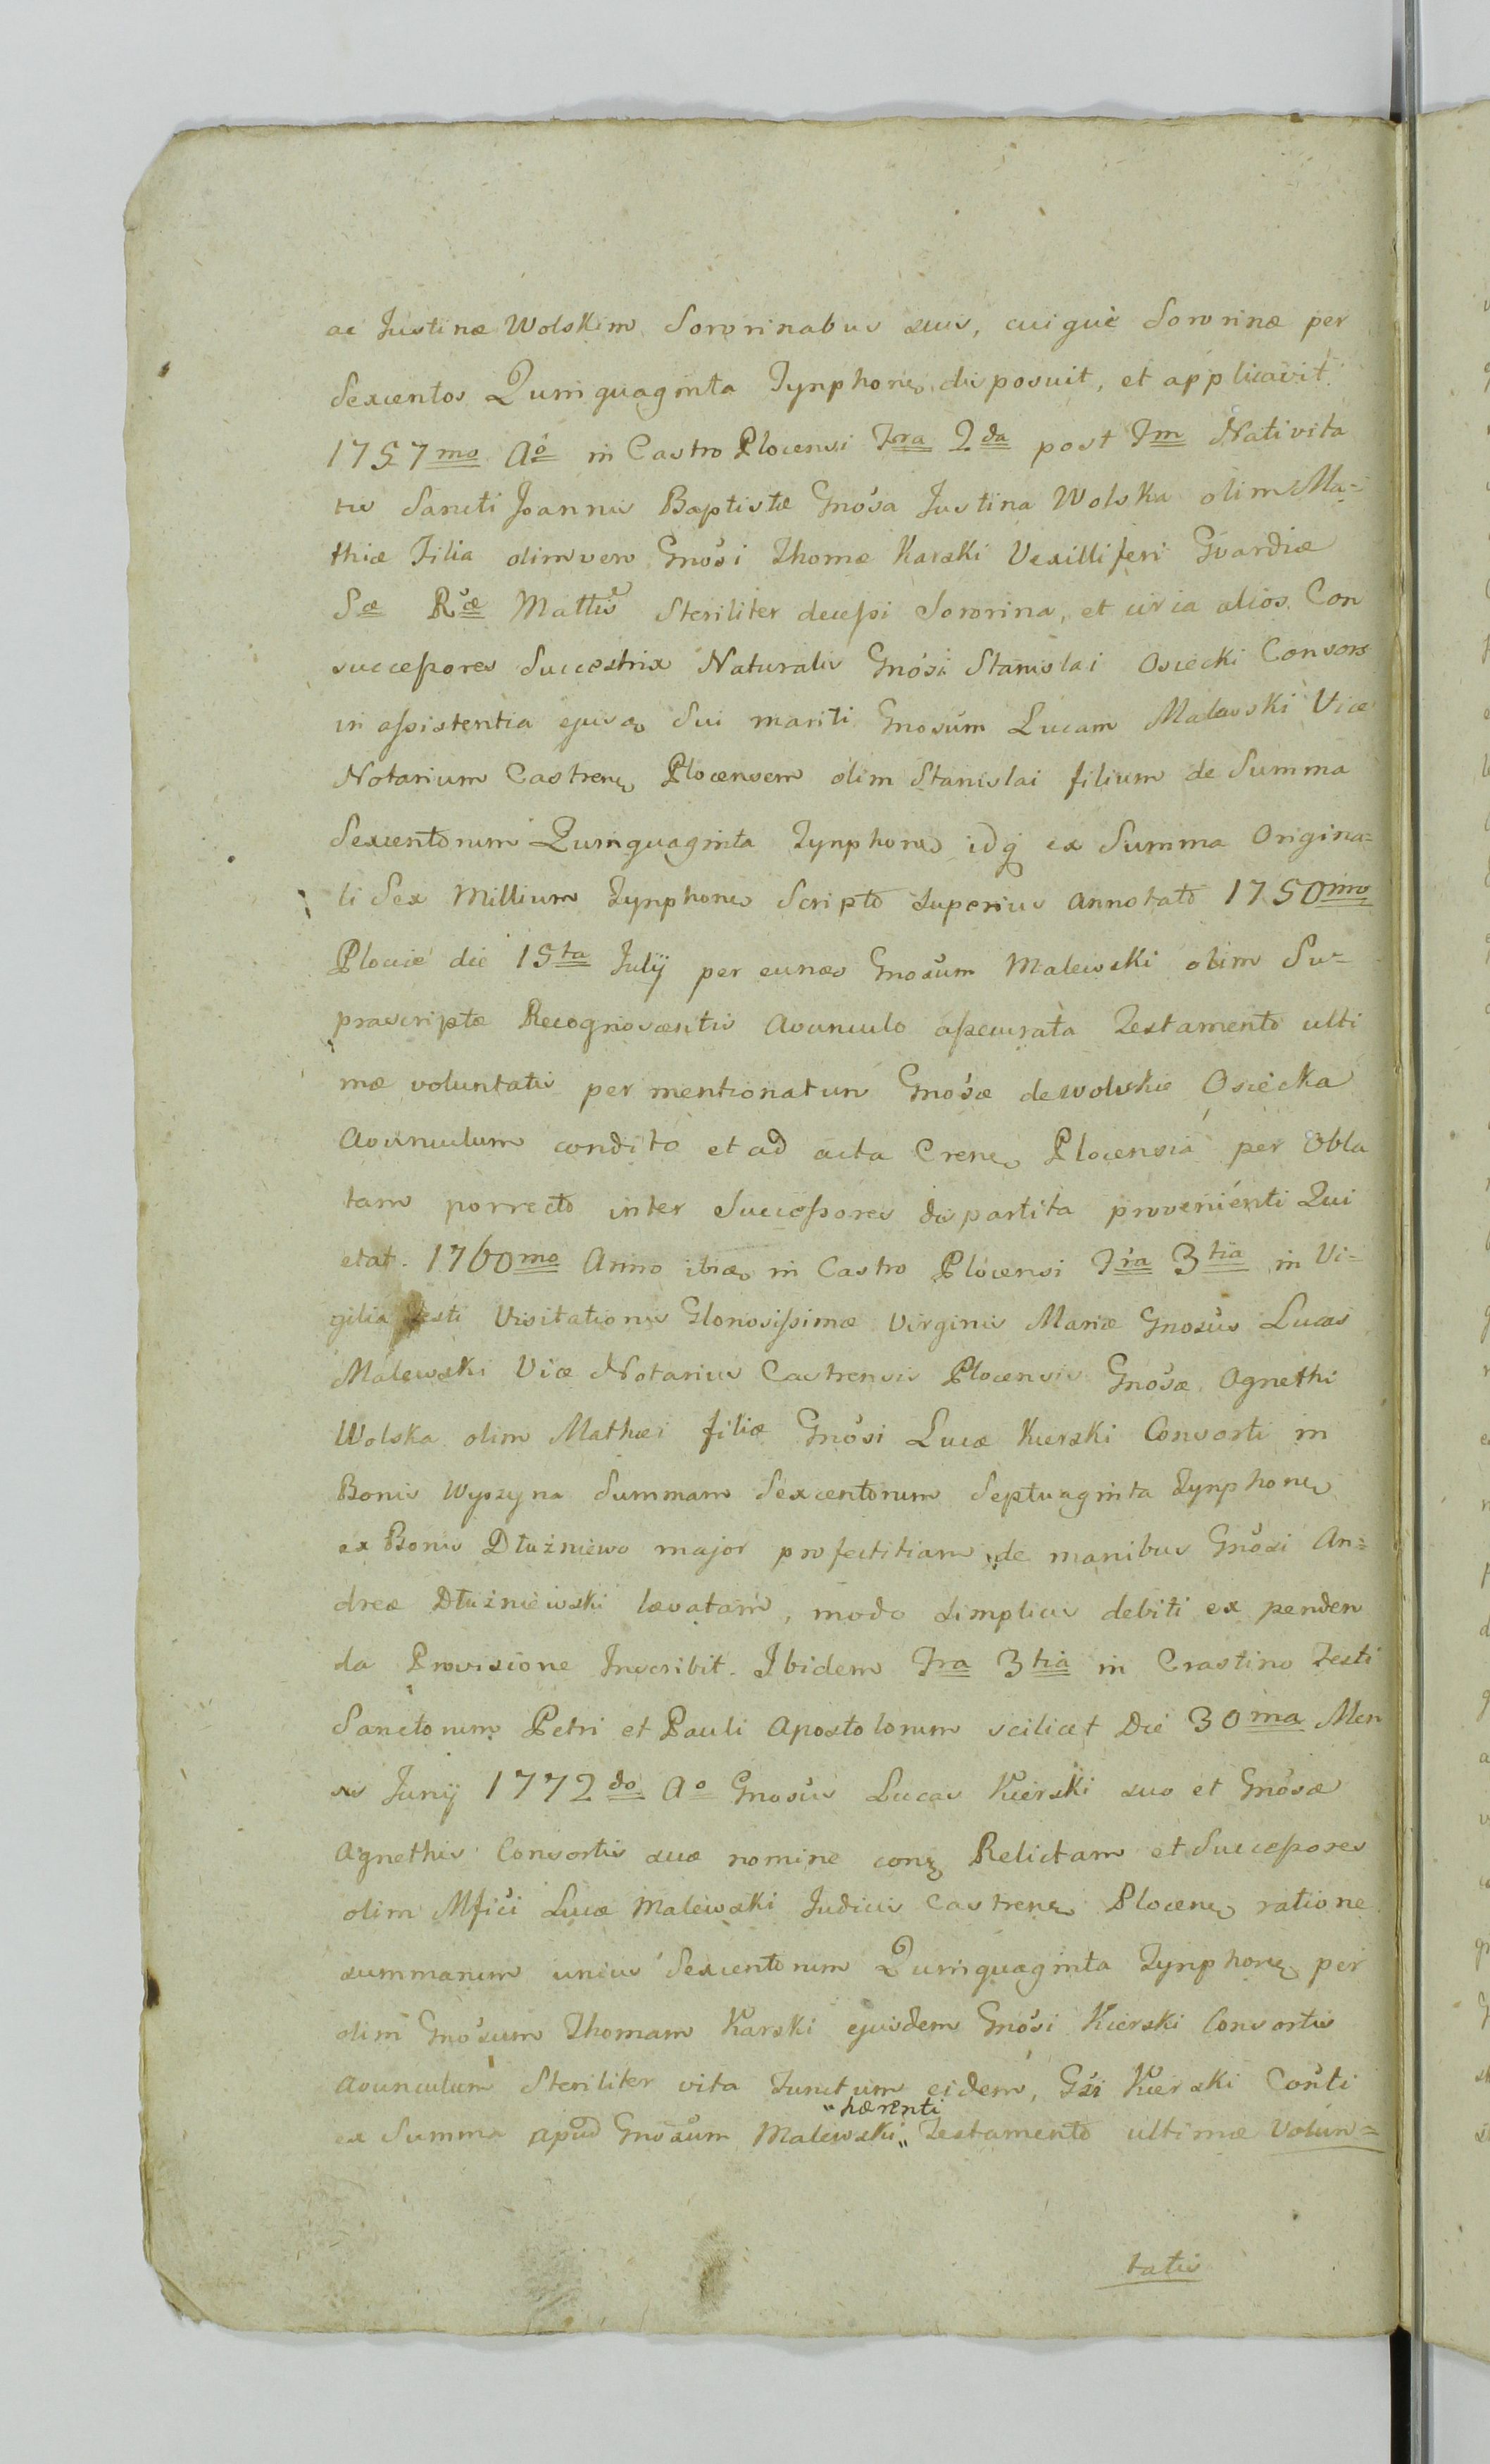 ac Justinæ Wolskim Sororinabus suis, cuique Sororinæ per
Sexcentos Quinquaginta Tynphones disposuit, et applicavit.
1757mo Ao in Castro Plocensi Fra 2da post Fm Nativita
tis Sancti Joannis Baptistæ Gnosa Justina Wolska olim Ma=
thiæ Filia olim vero Gnosi Thomæ Karski Vexilliferi Gvardiæ
Sæ Ræ Mattis Steriliter decessi Sororina, et circa alios Con
successores Successtrix Naturalis Gnosi Stanislai Osiecki Consors
in assistentia ejusdo Sui mariti Gnosum Lucam Malewski Vice
Notarium Castrens Plocensem olim Stanislai filium de Summa
Sexcentorum Quinquaginta Tynphones idq ex Summa Origina=
li Sex Millium Tynphones Scripto superius annotato 1750mo
Plociæ die 15ta Julij per eundo Gnosum Malewski olim Su=
prascriptæ Recognoscentis Avunculo assecurata Testamento ulti
mæ voluntatis per mentionatum Gnosæ de Wolskie Osiecka
Avunculum condito et ad acta Crens Plocensia per Obla
tam porrecto inter Successores dispartita provenienti Qui
etat. 1760mo Anno ibido in Castro Plocensi Fra 3tia in Vi=
gilia Festi Visitationis Gloriosissimæ Virginis Mariæ Gnosus Lucas
Malewski Vice Notarius Castrensis Plocensis Gnosæ Agnethi
Wolska olim Mathæi filiæ Gnosi Lucæ Kierski Consorti in
Bonis Wyszyna Summam Sexcentorum Septuaginta Tynphones
ex Bonis Dłużniewo major profectitiam de manibus Gnosi An=
dreæ Dłużniewski lævatam, modo simplicis debiti ex penden
da Provisione Inscribit. Ibidem Fra 3tia in Crastino Festi
Sanctorum Petri et Pauli Apostolorum scilicet Die 30ma Men
sis Junij 1772do Ao Gnosus Lucas Kierski suo et Gnosæ
Agnethis Consortis suæ nomine conq Relictam et Successores
olim Mfici Lucæ Malewski Judicis Castrens Plocens ratione
summarum unius Sexcentorum Quinquaginta Tynphones per
olim Gnosum Thomam Karski ejusdem Gnosi Kierski Consortis
Avunculum Steriliter vita functum eidem, Gsi Kierski Conti
"hærenti
ex Summa apud Gnosum Malewski" Testamento ultimæ Volun=
tatis